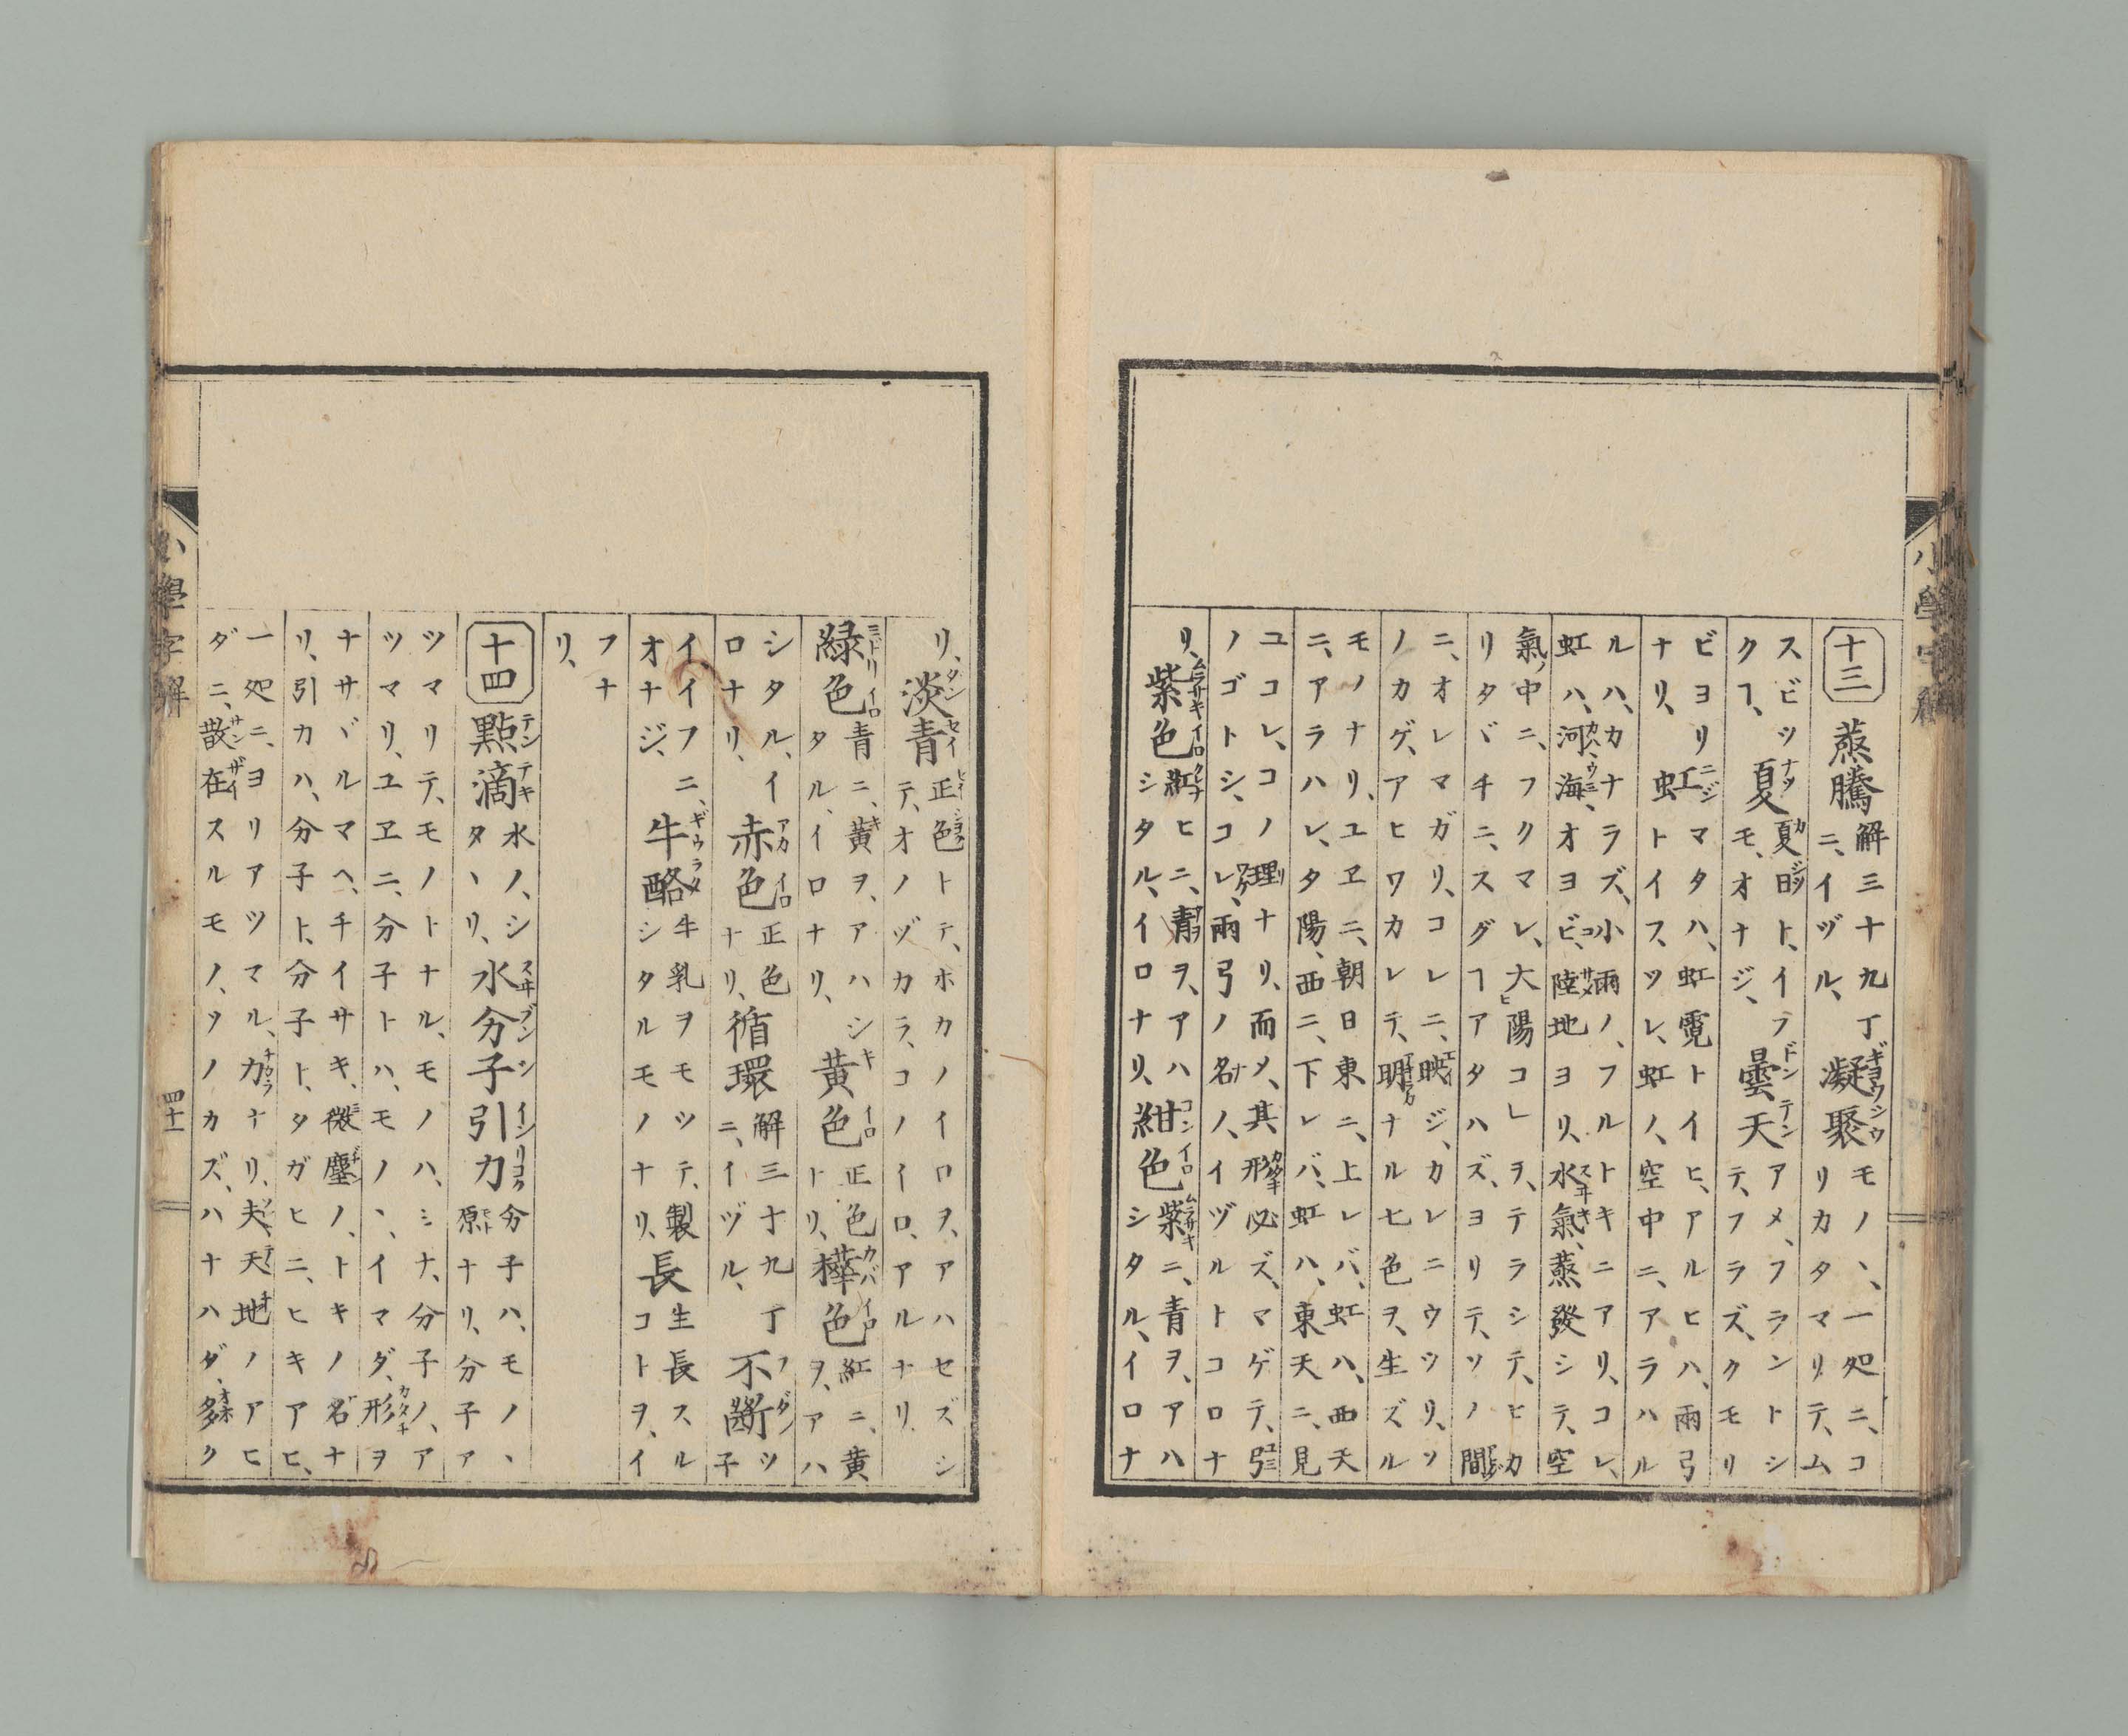 小學字解
十三 蒸騰 解三十九丁ニ、イヅル、凝聚 モノヽ、一処ニ、コリカタマリテ、ム
スビツクヿ、夏 夏日ト、イフモ、オナジ、曇天 アメ、フラントシテ、フラズ、クモリ
ビヨリナリ、虹 マタハ、虹霓トイヒ、アルヒハ、雨弓トイフ、ソレ、虹ノ、空中ニ、アラハル
ルハ、カナラズ、小雨ノ、フルトキニアリ、コレ、
虹ハ、河海、オヨビ、陸地ヨリ、水氣、蒸發シテ、空
氣ノ中ニ、フクマレ、大陽コレヲ、テラシテ、ヒカ
リタヾチニ、スグヿアタハズ、ヨリテ、ソノ間
ニ、オレマガリ、コレニ、映ジ、カレニウツリ、ソ
ノカゲ、アヒワカレテ、明ナル七色ヲ、生ズル
モノナリ、ユヱニ、朝日東ニ、上レバ、虹ハ、西天
ニ、アラハレ、夕陽、西ニ、下レバ、虹ハ、東天ニ、見
ユコレ、コノ理ナリ、而〆、其形必ズ、マゲテ、弓
ノゴトシ、コレ、雨弓ノ名ノ、イヅルトコロナ
リ、紫色 紅ヒニ、青ヲ、アハシタル、イロナリ、紺色 紫ニ、青ヲ、アハシタル、イロナ
リ、淡青 正色トテ、ホカノイロヲ、アハセズシテ、オノヅカラ、コノイロ、アルナリ、
緑色 青ニ、黄ヲ、アハシタル、イロナリ、黄色 正色トリ、樺色 紅ニ、黄ヲ、アハ
シタル、イロナリ、赤色 正色ナリ、循環 解三十九丁ニ、イヅル、不斷 ツ子
イイフニ、オナジ、牛酪 牛乳ヲモツテ、製シタルモノナリ、長 生長スルコトヲ、イ
フナリ、
十四 點滴 水ノ、シタヽリ、水分子引力 分子ハ、モノヽ原ナリ、分子ア
ツマリテ、モノトナル、モノハ、ミナ、分子ノ、ア
ツマリ、ユヱニ、分子トハ、モノヽ、イマダ、形ヲ
ナサヾルマヘ、チイサキ、微塵ノ、トキノ名ナ
リ、引カハ、分子ト、分子ト、タガヒニ、ヒキアヒ、
一処ニ、ヨリアツマル、力ナリ、夫、天地ノアヒ
ダニ、散在スルモノ、ソノカズ、ハナハダ、多ク
小學字解 四十一